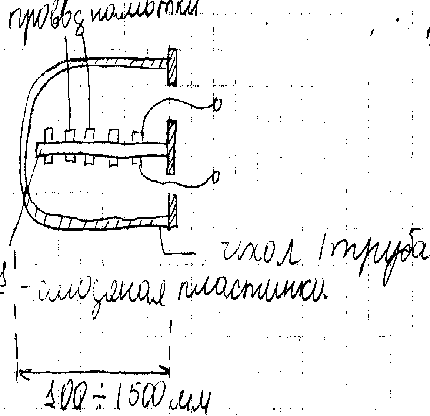 провод намотки
чехол / труба
1 - слюдяная пластинка
100 ÷ 1500 мм